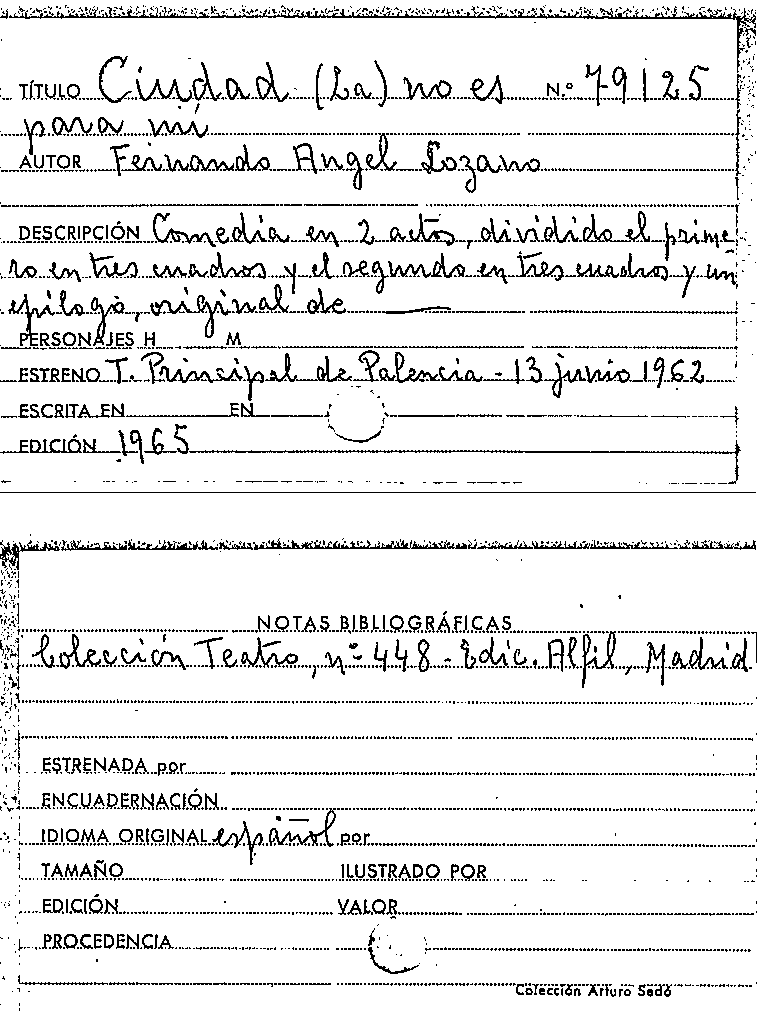 TÍTULO Ciudad (La) no es N.º 79125
para mí
AUTOR Fernando Angel Lozano
DESCRIPCIÓN Comedia en 2 actos, dividido el prime
ro en tres cuadros y el segundo en tres cuadros y un
epílogo, original de ——
PERSONAJES H M
ESTRENO T. Principal de Palencia - 13 junio 1962
ESCRITA EN EN
EDICIÓN 1965
NOTAS BIBLIOGRÁFICAS
Colección Teatro, nº 448 - Edic. Alfil, Madrid
ESTRENADA por
ENCUADERNACIÓN
IDIOMA ORIGINAL español por
TAMAÑO ILUSTRADO POR
EDICIÓN VALOR
PROCEDENCIA
Colección Arturo Sedó